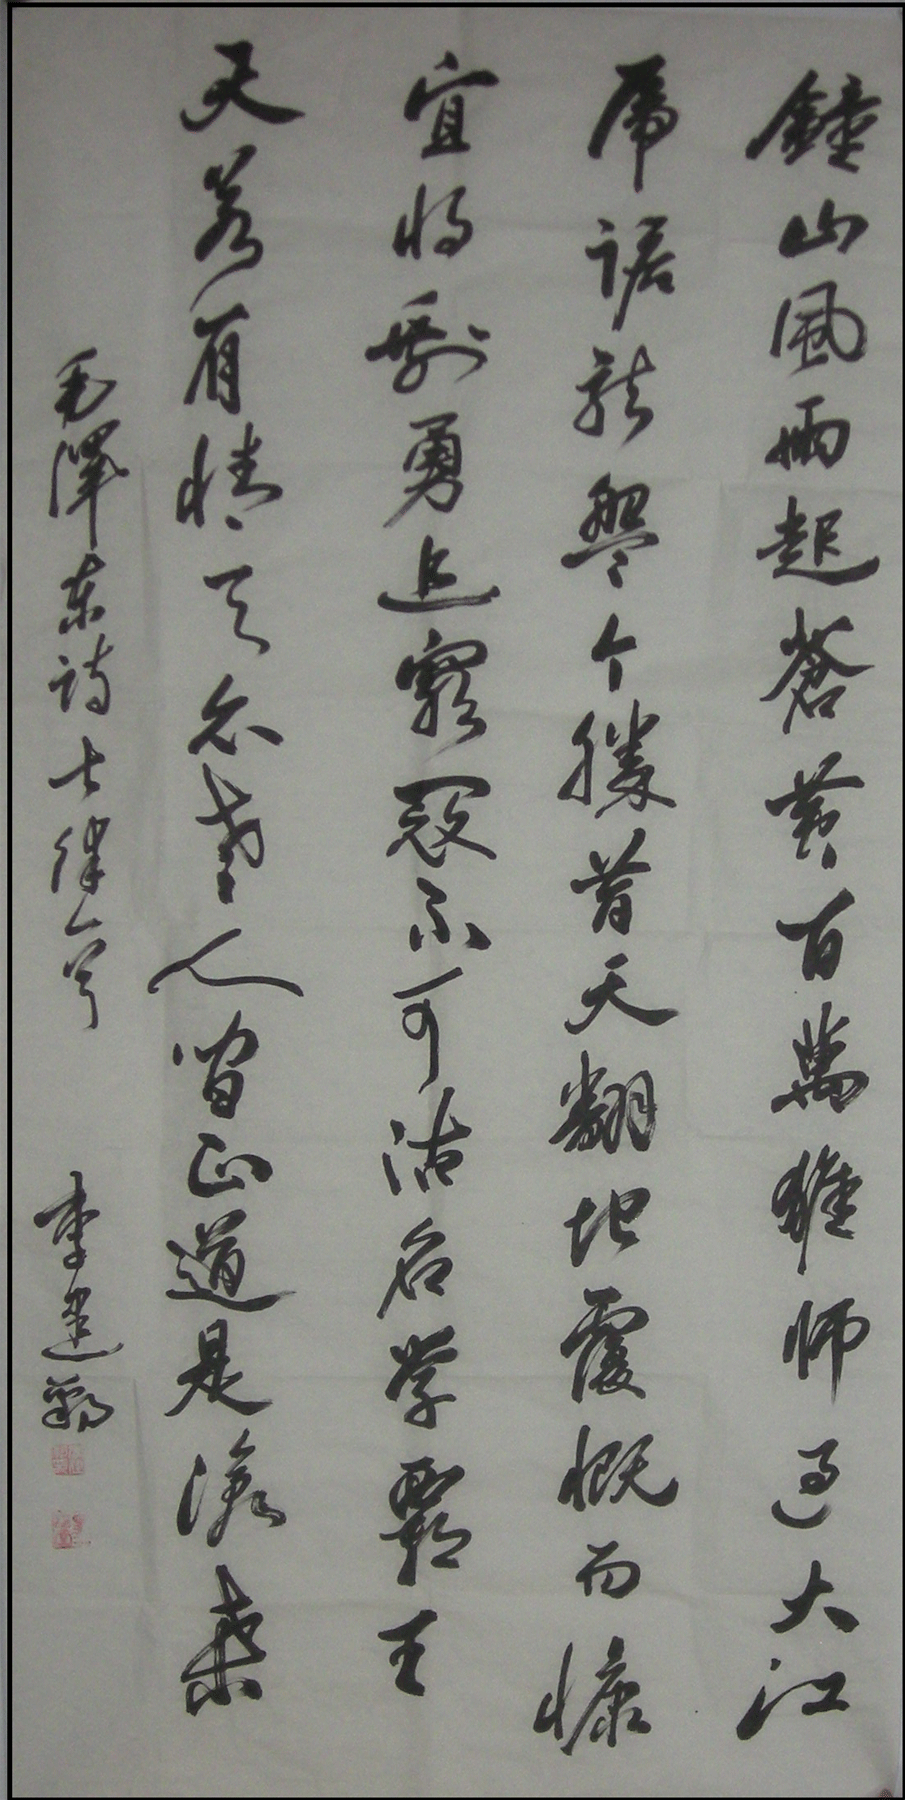 鐘山風雨起蒼黄百萬雄師过大江
虎踞龍盤今勝昔天翻地覆慨而慷
宜將剩勇追窮寇不可沽名学霸王
天若有情天亦老人間正道是滄桑
毛澤东詩七律一首 李建